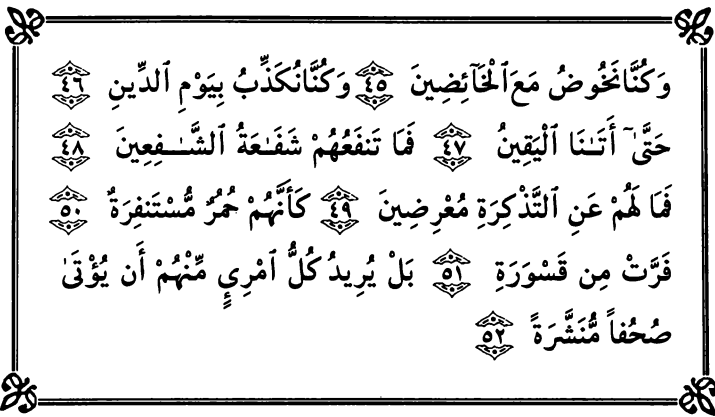 وَكُنَّا نَخُوضُ مَعَ ٱلْخَآئِضِينَ ٤٥ وَكُنَّا نُكَذِّبُ بِيَوْمِ ٱلدِّينِ ٤٦
حَتَّىٰٓ أَتَىٰنَا ٱلْيَقِينُ ٤٧ فَمَا تَنفَعُهُمْ شَفَـٰعَةُ ٱلشَّـٰفِعِينَ ٤٨
فَمَا لَهُمْ عَنِ ٱلتَّذْكِرَةِ مُعْرِضِينَ ٤٩ كَأَنَّهُمْ حُمُرٌ مُّسْتَنفِرَةٌ ٥٠
فَرَّتْ مِن قَسْوَرَةٍ ٥١ بَلْ يُرِيدُ كُلُّ ٱمْرِئٍ مِّنْهُمْ أَن يُؤْتَىٰ
صُحُفاً مُّنَشَّرَةً ٥٢